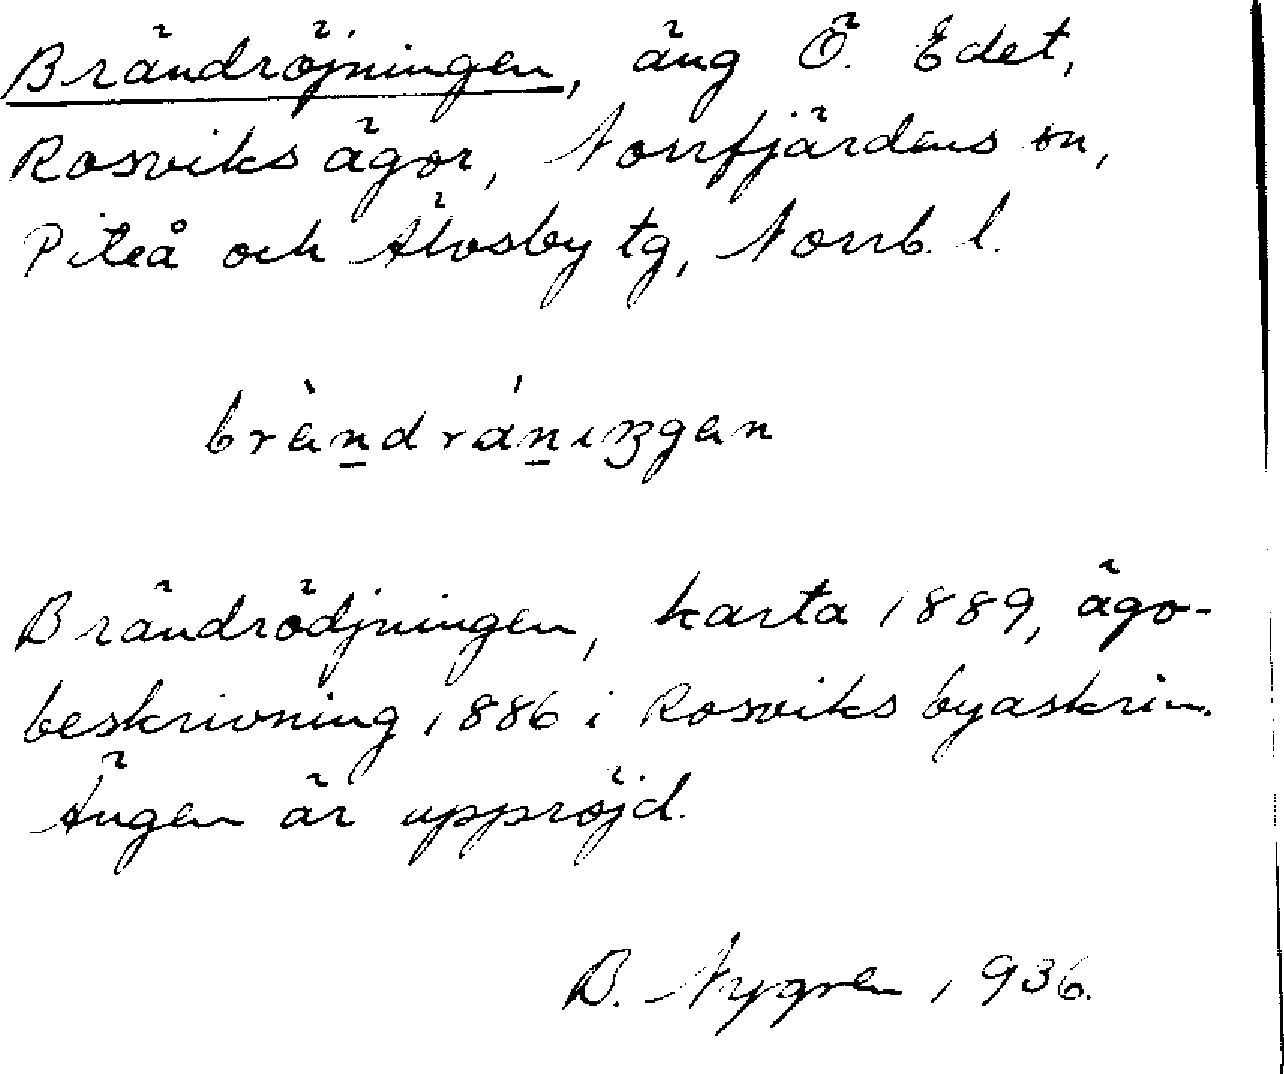 Brändröjningen, äng Ö. Edet,
Rosviks ägor, Norrfjärdens sn,
Piteå och Älvsby tg, Norrb. l.
brä̀ndrániŋgen
Brändrödjningen, karta 1889, ägo-
beskrivning 1886 i Rosviks byaskrin.
Ängen är uppröjd.
B. Nygren 1936.